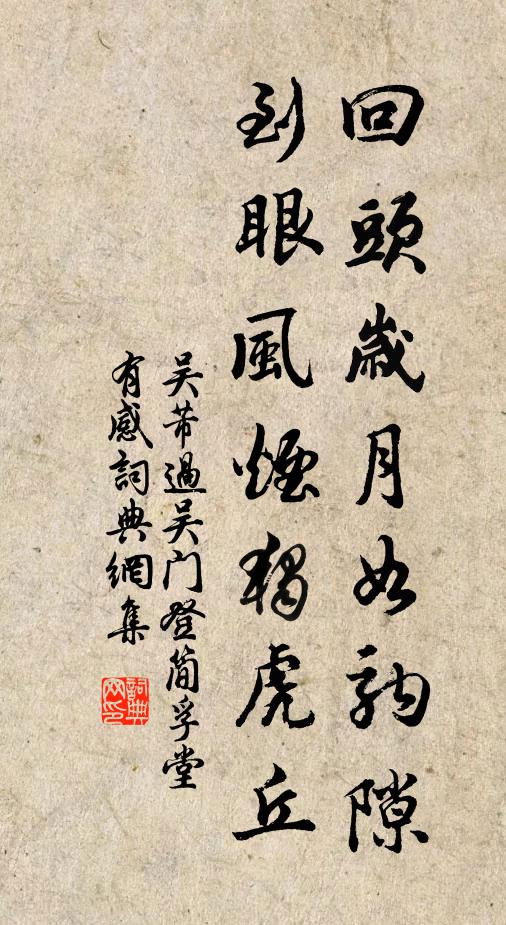 回頭歲月如駒隙
到眼風煙獨虎丘
吴芾過吴门登簡孚堂
有感詞典網集
詞典
网印